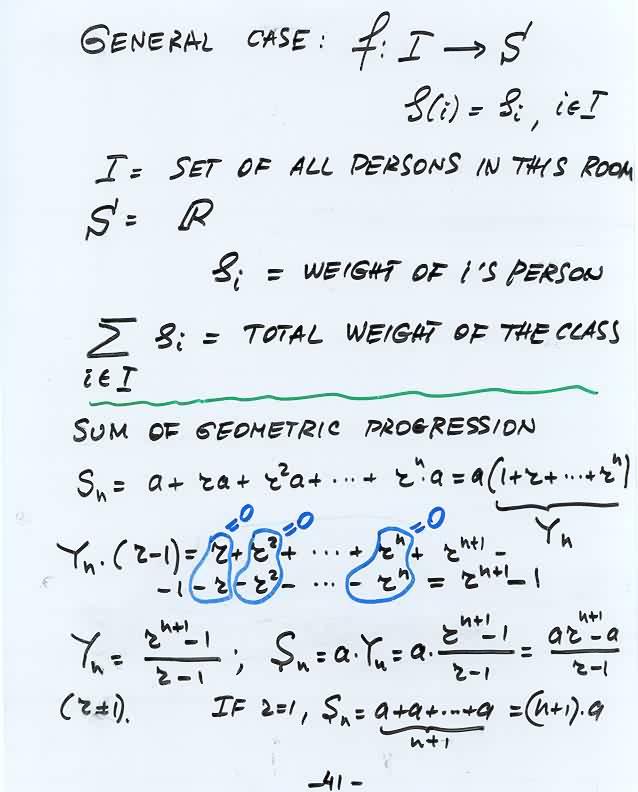 GENERAL CASE: f: I → S
S(i) = Si, i∈I
I = SET OF ALL PERSONS IN THIS ROOM
S = ℝ
Si = WEIGHT OF i'S PERSON
∑ Si = TOTAL WEIGHT OF THE CLASS
i∈I
SUM OF GEOMETRIC PROGRESSION
Sn = a + ra + r²a + ⋯ + rⁿ·a = a(1+r+⋯+rⁿ)
=0 =0 =0 Yn
Yn·(r-1) = r + r² + ⋯ + rⁿ + rⁿ⁺¹ -
-1 - r - r² - ⋯ - rⁿ = rⁿ⁺¹ - 1
Yn = (rⁿ⁺¹-1)/(r-1); Sn = a·Yn = a·(rⁿ⁺¹-1)/(r-1) = (arⁿ⁺¹-a)/(r-1)
(r≠1). IF r=1, Sn = a+a+⋯+a = (n+1)·a
n+1
-41-